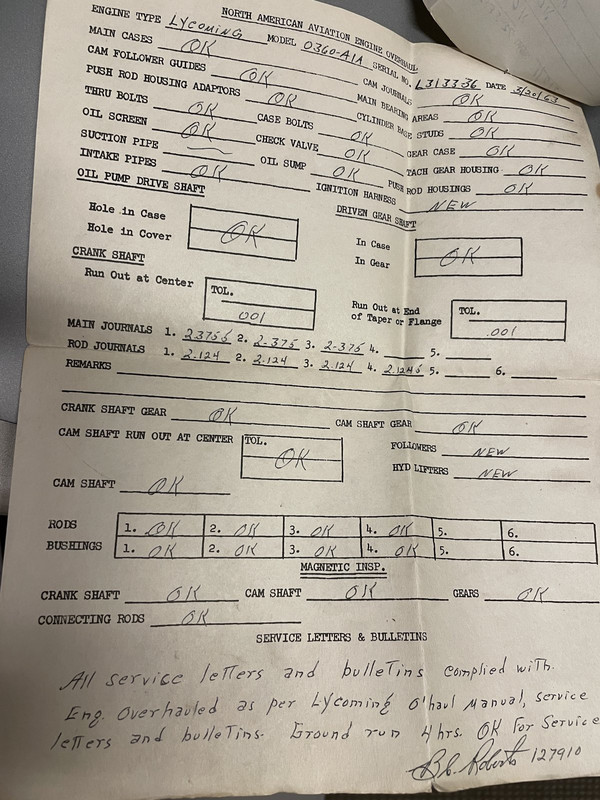 NORTH AMERICAN AVIATION ENGINE OVERHAUL
ENGINE TYPE LYCOMING MODEL O360-A1A SERIAL NO. L313336 DATE 3/20/63
MAIN CASES OK CAM JOURNALS OK
CAM FOLLOWER GUIDES OK MAIN BEARING AREAS OK
PUSH ROD HOUSING ADAPTORS OK CYLINDER BASE STUDS OK
THRU BOLTS OK CASE BOLTS OK GEAR CASE OK
OIL SCREEN OK CHECK VALVE OK TACH GEAR HOUSING OK
SUCTION PIPE — OIL SUMP OK PUSH ROD HOUSINGS OK
INTAKE PIPES OK IGNITION HARNESS NEW
OIL PUMP DRIVE SHAFT DRIVEN GEAR SHAFT
Hole in Case In Case
Hole in Cover OK In Gear OK
CRANK SHAFT
Run Out at Center TOL. .001 Run Out at End of Taper or Flange TOL. .001
MAIN JOURNALS 1. 2.3755 2. 2.375 3. 2.375 4. 5.
ROD JOURNALS 1. 2.124 2. 2.124 3. 2.124 4. 2.1245 5. 6.
REMARKS
CRANK SHAFT GEAR OK CAM SHAFT GEAR OK
CAM SHAFT RUN OUT AT CENTER TOL. OK FOLLOWERS NEW
HYD LIFTERS NEW
CAM SHAFT OK
RODS 1. OK 2. OK 3. OK 4. OK 5. 6.
BUSHINGS 1. OK 2. OK 3. OK 4. OK 5. 6.
MAGNETIC INSP.
CRANK SHAFT OK CAM SHAFT OK GEARS OK
CONNECTING RODS OK
SERVICE LETTERS & BULLETINS
All service letters and bulletins complied with.
Eng. Overhauled as per Lycoming O'haul Manual, service
letters and bulletins. Ground run 4 hrs. OK For Service
B.C. Roberts 127910